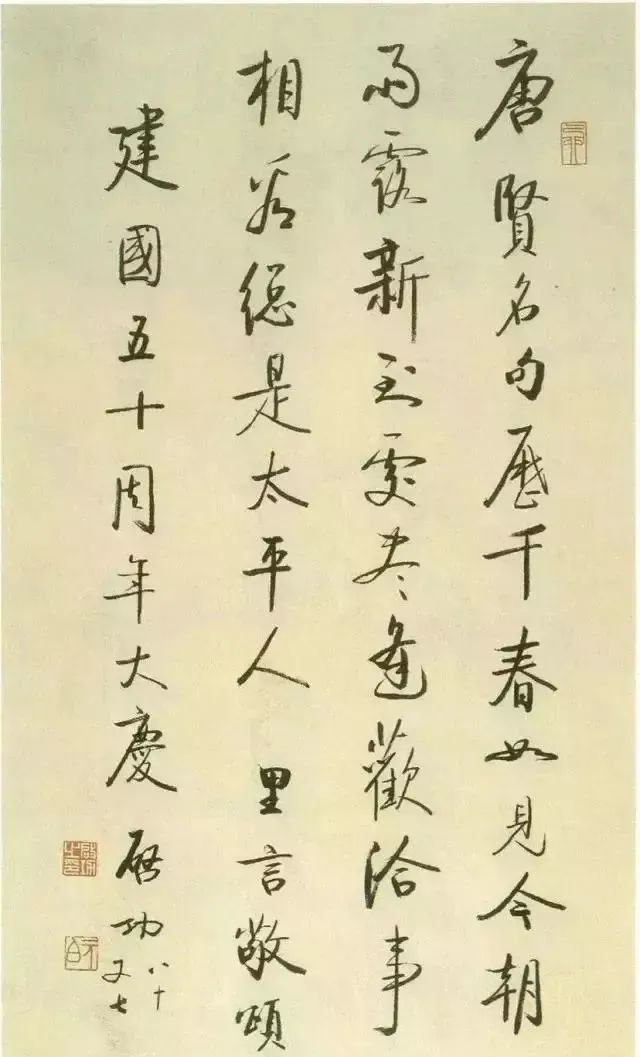 唐賢名句歷千春如見今朝
雨露新到處尽逢歡洽事
相看總是太平人 里言敬頌
建國五十周年大慶 启功 八十又七
元白